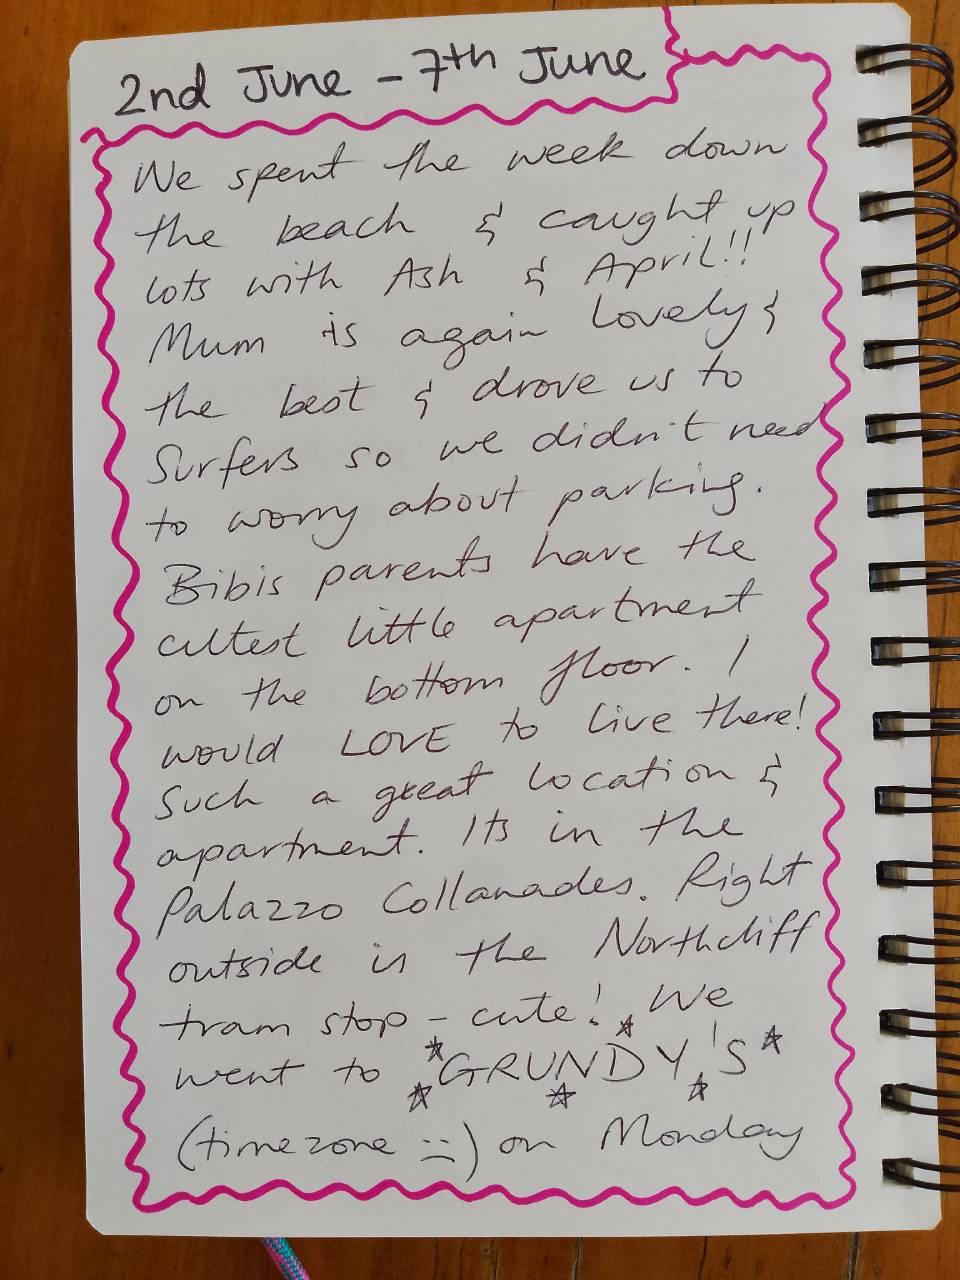 2nd June - 7th June
We spent the week down
the beach & caught up
lots with Ash & April!!
Mum is again lovely &
the best & drove us to
Surfers so we didn't need
to worry about parking.
Bibis parents have the
cutest little apartment
on the bottom floor. I
would LOVE to live there!
Such a great location &
apartment. Its in the
Palazzo Collanades. Right
outside is the Northcliff
tram stop - cute! We
went to GRUNDY'S
(timezone :)) on Monday